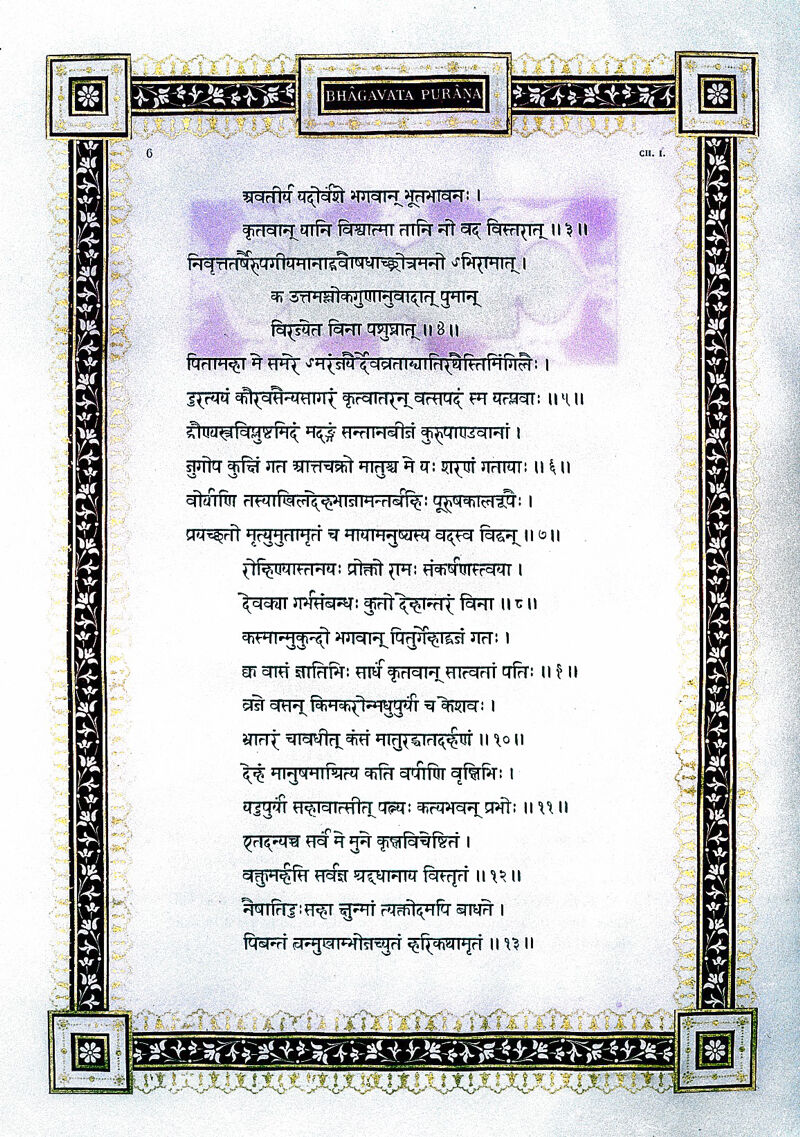 BHÂGAVATA PURÂṆA
6
CH. I.
अवतीर्य यदोर्वंशे भगवान् भूतभावनः ।
कृतवान् यानि विश्वात्मा तानि नो वद विस्तरात् ॥३॥
निवृत्ततर्षैरुपगीयमानाद्भवौषधाच्छ्रोत्रमनो ऽभिरामात् ।
क उत्तमश्लोकगुणानुवादात् पुमान्
विरज्येत विना पशुघ्नात् ॥४॥
पितामहा मे समरे ऽमरंजयैर्देवव्रताद्यातिरथैस्तिमिंगिलैः ।
दुरत्ययं कौरवसैन्यसागरं कृत्वातरन् वत्सपदं स्म यत्प्लवाः ॥५॥
द्रौण्यस्त्रविप्लुष्टमिदं मदङ्गं सन्तानबीजं कुरुपाण्डवानां ।
जुगोप कुक्षिं गत आत्तचक्रो मातुश्च मे यः शरणं गतायाः ॥६॥
वीर्याणि तस्याखिलदेहभाजामन्तर्बहिः पूरुषकालरूपैः ।
प्रयच्छतो मृत्युमुतामृतं च मायामनुष्यस्य वदस्व विद्वन् ॥७॥
रोहिण्यास्तनयः प्रोक्तो रामः संकर्षणस्त्वया ।
देवक्या गर्भसंबन्धः कुतो देहान्तरं विना ॥८॥
कस्मान्मुकुन्दो भगवान् पितुर्गेहाद्व्रजं गतः ।
क्व वासं ज्ञातिभिः सार्धं कृतवान् सात्वतां पतिः ॥९॥
व्रजे वसन् किमकरोन्मधुपुर्यां च केशवः ।
भ्रातरं चावधीत् कंसं मातुरद्धातदर्हणं ॥१०॥
देहं मानुषमाश्रित्य कति वर्षाणि वृष्णिभिः ।
यदुपुर्यां सहावात्सीत् पत्न्यः कत्यभवन् प्रभोः ॥११॥
एतदन्यच्च सर्वं मे मुने कृष्णविचेष्टितं ।
वक्तुमर्हसि सर्वज्ञ श्रद्दधानाय विस्तृतं ॥१२॥
नैषातिदुःसहा क्षुन्मां त्यक्तोदमपि बाधते ।
पिबन्तं त्वन्मुखाम्भोजच्युतं हरिकथामृतं ॥१३॥